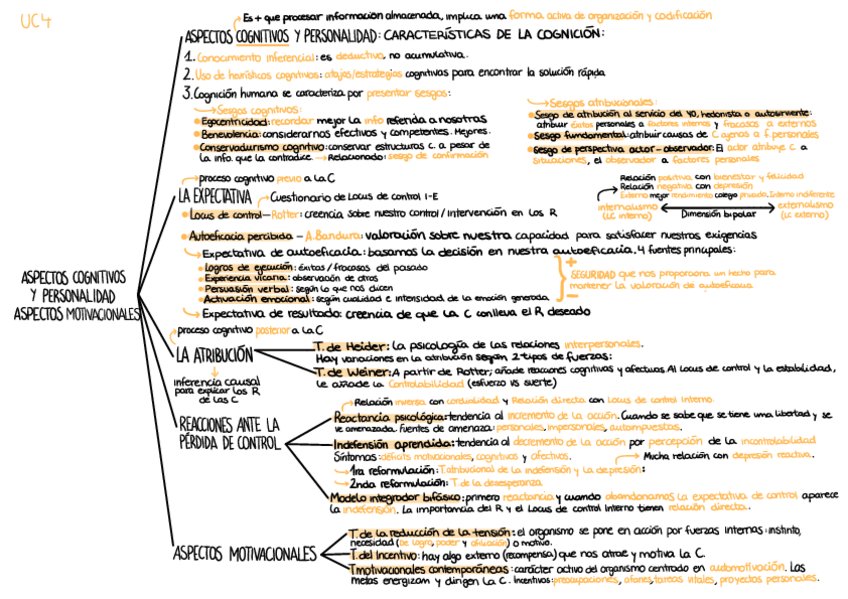 UC4
Es + que procesar información almacenada, implica una forma activa de organización y codificación
ASPECTOS COGNITIVOS Y PERSONALIDAD: CARACTERÍSTICAS DE LA COGNICIÓN:
1. Conocimiento inferencial: es deductivo, no acumulativa.
2. Uso de heurísticos cognitivos: atajos/estrategias cognitivas para encontrar la solución rápida
3. Cognición humana se caracteriza por presentar sesgos:
Sesgos cognitivos:
Egocentricidad: recordar mejor la info referida a nosotras
Benevolencia: considerarnos efectivos y competentes. Mejores.
Conservadurismo cognitivo: conservar estructuras c. a pesar de
la info. que la contradice. → Relacionado: sesgo de confirmación
Sesgos atribucionales:
Sesgo de atribución al servicio del YO, hedonista o autosirviente:
atribuir éxitos personales a factores internos y fracasos a externos
Sesgo fundamental: atribuir causas de C ajenas a f. personales
Sesgo de perspectiva actor-observador: El actor atribuye C a
situaciones, el observador a factores personales
proceso cognitivo previo a la C
LA EXPECTATIVA
Cuestionario de Locus de control I-E
Locus de control – Rotter: creencia sobre nuestro control/intervención en los R
Relación positiva con bienestar y felicidad
Relación negativa con depresión
Externo mejor rendimiento colegio privado. Interno indiferente
internalismo
(LC interno)
Dimensión bipolar
externalismo
(LC externo)
Autoeficacia percibida – A. Bandura: valoración sobre nuestra capacidad para satisfacer nuestras exigencias
Expectativa de autoeficacia: basamos la decisión en nuestra autoeficacia. 4 fuentes principales:
Logros de ejecución: éxitos/fracasos del pasado
Experiencia vicaria: observación de otros
Persuasión verbal: según lo que nos dicen
Activación emocional: según cualidad e intensidad de la emoción generada
+
SEGURIDAD que nos proporciona un hecho para
mantener la valoración de autoeficacia
–
Expectativa de resultado: creencia de que la C conlleva el R deseado
ASPECTOS COGNITIVOS
Y PERSONALIDAD
ASPECTOS MOTIVACIONALES
proceso cognitivo posterior a la C
LA ATRIBUCIÓN
inferencia causal
para explicar los R
de las C
T. de Heider: la psicología de las relaciones interpersonales.
Hay variaciones en la atribución según 2 tipos de fuerzas:
T. de Weiner: A partir de Rotter, añade reacciones cognitivas y afectivas. Al locus de control y la estabilidad,
le añade la Controlabilidad (esfuerzo vs suerte)
REACCIONES ANTE LA
PÉRDIDA DE CONTROL
Relación inversa con cordialidad y Relación directa con Locus de control Interno
Reactancia psicológica: tendencia al incremento de la acción. Cuando se sabe que se tiene una libertad y se
ve amenazada. Fuentes de amenaza: personales, impersonales, autoimpuestas.
Indefensión aprendida: tendencia al decremento de la acción por percepción de la incontrolabilidad
Síntomas: déficits motivacionales, cognitivos y afectivos.
Mucha relación con depresión reactiva.
1ra reformulación: T. atribucional de la indefensión y la depresión:
2nda reformulación: T. de la desesperanza
Modelo integrador bifásico: primero reactancia y cuando abandonamos la expectativa de control aparece
la indefensión. La importancia del R y el Locus de control Interno tienen relación directa.
ASPECTOS MOTIVACIONALES
T. de la reducción de la tensión: el organismo se pone en acción por fuerzas internas: instinto,
necesidad (de logro, poder y afiliación) o motivo.
T. del Incentivo: hay algo externo (recompensa) que nos atrae y motiva la C.
T motivacionales contemporáneas: carácter activo del organismo centrado en automotivación. Las
metas energizan y dirigen la C. Incentivos: preocupaciones, afanes, tareas vitales, proyectos personales.